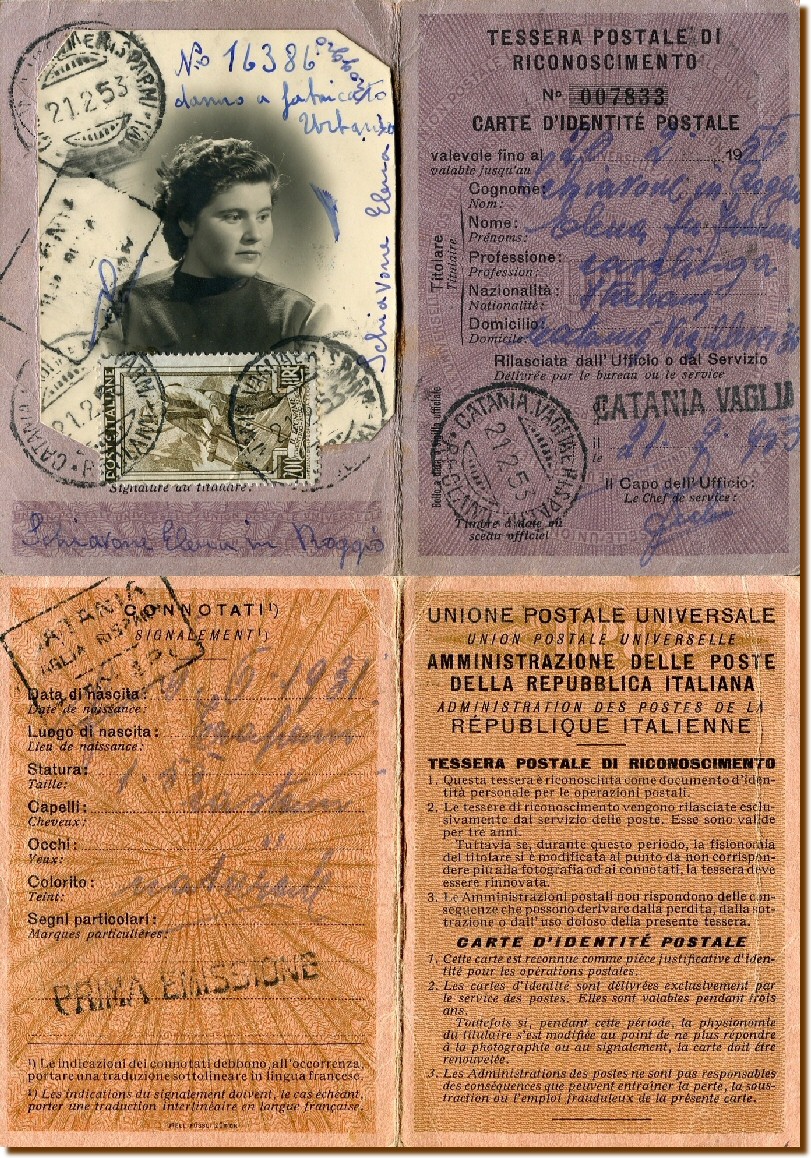 21.2.53
No 16386
danno a fabricato
Urbano
Schiavone Elena
POSTE ITALIANE
LIRE 200
Signature du titulaire:
Schiavone Elena in Roggio
TESSERA POSTALE DI
RICONOSCIMENTO
No 007833
CARTE D'IDENTITÉ POSTALE
valevole fino al 20 2 1956
valable jusqu'au
Titolare
Titulaire
Cognome: Schiavone in Roggio
Nom:
Nome: Elena fu
Prénoms:
Professione: casalinga
Profession:
Nazionalità: Italiana
Nationalité:
Domicilio: Catania Via
Domicile:
Rilasciata dall'Ufficio o dal Servizio
Délivrée par le bureau ou le service
CATANIA VAGLIA
il 21-2-953
le
CATANIA. VAGLIA E RISPARMI
21.2.53
Bollo a data e sigillo ufficiale
Timbre à date ou
sceau officiel
Il Capo dell'Ufficio:
Le Chef de service:
CATANIA
VAGLIA RISPARMI
CONNOTATI¹)
SIGNALEMENT¹)
Data di nascita: 6-1931
Date de naissance:
Luogo di nascita: Trapani
Lieu de naissance:
Statura: 1.55
Taille:
Capelli: castani
Cheveux:
Occhi: "
Yeux:
Colorito: naturale
Teint:
Segni particolari:
Marques particulières:
PRIMA EMISSIONE
¹) Le indicazioni dei connotati debbono, all'occorrenza,
portare una traduzione sottolineare in lingua francese.
¹) Les indications du signalement doivent, le cas échéant,
porter une traduction interlinéaire en langue française.
UNIONE POSTALE UNIVERSALE
UNION POSTALE UNIVERSELLE
AMMINISTRAZIONE DELLE POSTE
DELLA REPUBBLICA ITALIANA
ADMINISTRATION DES POSTES DE LA
RÉPUBLIQUE ITALIENNE
TESSERA POSTALE DI RICONOSCIMENTO
1. Questa tessera è riconosciuta come documento d'iden-
tità personale per le operazioni postali.
2. Le tessere di riconoscimento vengono rilasciate esclu-
sivamente dal servizio delle poste. Esse sono valide
per tre anni.
Tuttavia se, durante questo periodo, la fisionomia
del titolare si è modificata al punto da non corrispon-
dere più alla fotografia od ai connotati, la tessera deve
essere rinnovata.
3. Le Amministrazioni postali non rispondono delle con-
seguenze che possono derivare dalla perdita, dalla sot-
trazione o dall'uso doloso della presente tessera.
CARTE D'IDENTITÉ POSTALE
1. Cette carte est reconnue comme pièce justificative d'iden-
tité pour les opérations postales.
2. Les cartes d'identité sont délivrées exclusivement par
le service des postes. Elles sont valables pendant trois
ans.
Toutefois si, pendant cette période, la physionomie
du titulaire s'est modifiée au point de ne plus répondre
à la photographie ou au signalement, la carte doit être
renouvelée.
3. Les Administrations des postes ne sont pas responsables
des conséquences que peuvent entraîner la perte, la sous-
traction ou l'emploi frauduleux de la présente carte.